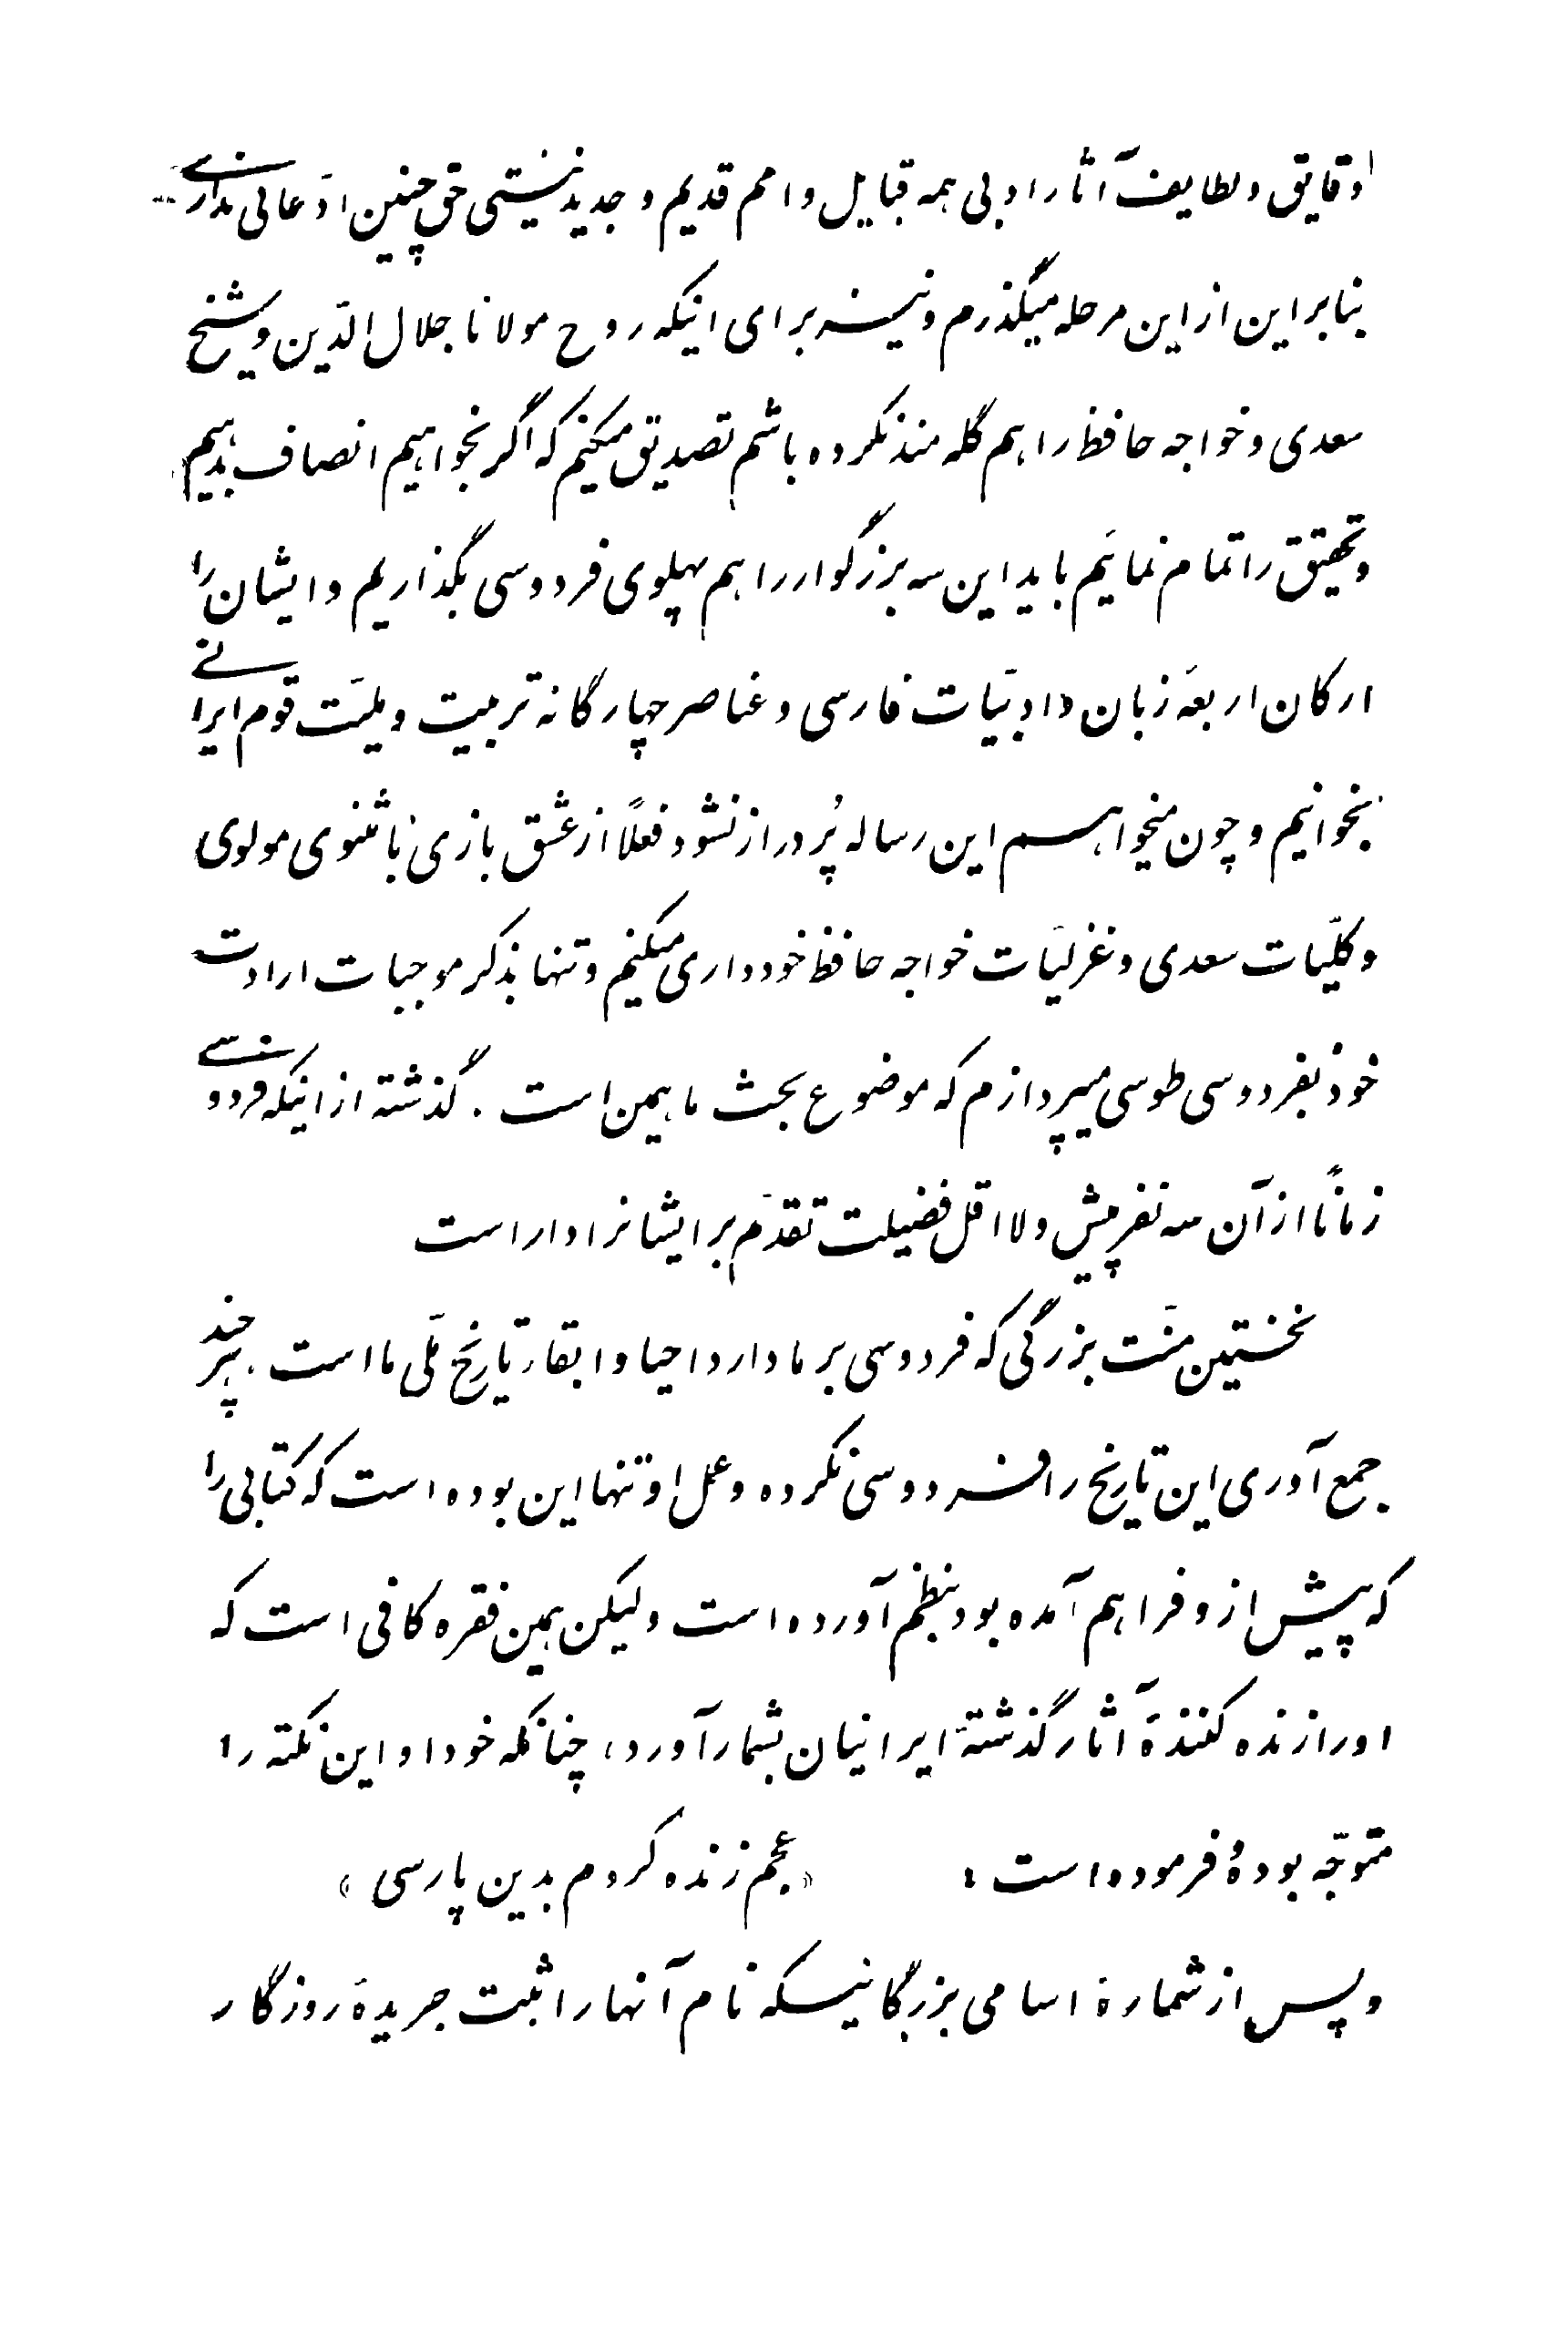 دقایق و لطایف آثار ادبی همه قبایل و امم قدیم و جدید نیستی حق چنین ادّعائی نداری ...
بنابراین از این مرحله میگذرم و نیز برای اینکه روح مولانا جلال الدّین و شیخ
سعدی و خواجه حافظ را هم گله مند نکرده باشم تصدیق میکنم که اگر بخواهیم انصاف بدهیم
و تحقیق را تمام نمائیم باید این سه بزرگوار را هم پهلوی فردوسی بگذاریم و ایشان را
ارکان اربعهٔ زبان و ادبیّات فارسی و عناصر چهارگانه تربیت و ملیّت قوم ایرانی
بخوانیم و چون میخواهم این رساله پُر دراز نشود فعلاً از عشق بازی با مثنوی مولوی
و کلّیات سعدی و غزلیّات خواجه حافظ خودداری میکنم و تنها بذکر موجبات ارادت
خود بفردوسی طوسی میپردازم که موضوع بحث ما همین است . گذشته از اینکه فردوسی
زماناً از آن سه نفر پیش و لااقل فضیلت تقدّم بر ایشانرا دارا است
نخستین منّت بزرگی که فردوسی بر ما دارد احیا و ابقاء تاریخ ملّی ما است ، هر چند
جمع آوری این تاریخ را فردوسی نکرده و عمل او تنها این بوده است که کتابی را
که پیش از و فراهم آمده بود بنظم آورده است ولیکن همین فقره کافی است که
او را زنده کنندهٔ آثار گذشتهٔ ایرانیان بشمار آورد ، چنانکه خود او این نکته را
متوجّه بوده و فرموده است : « عجم زنده کردم بدین پارسی »
و پس از شمارهٔ اسامی بزرگانیکه نام آنها را ثبت جریدهٔ روزگار